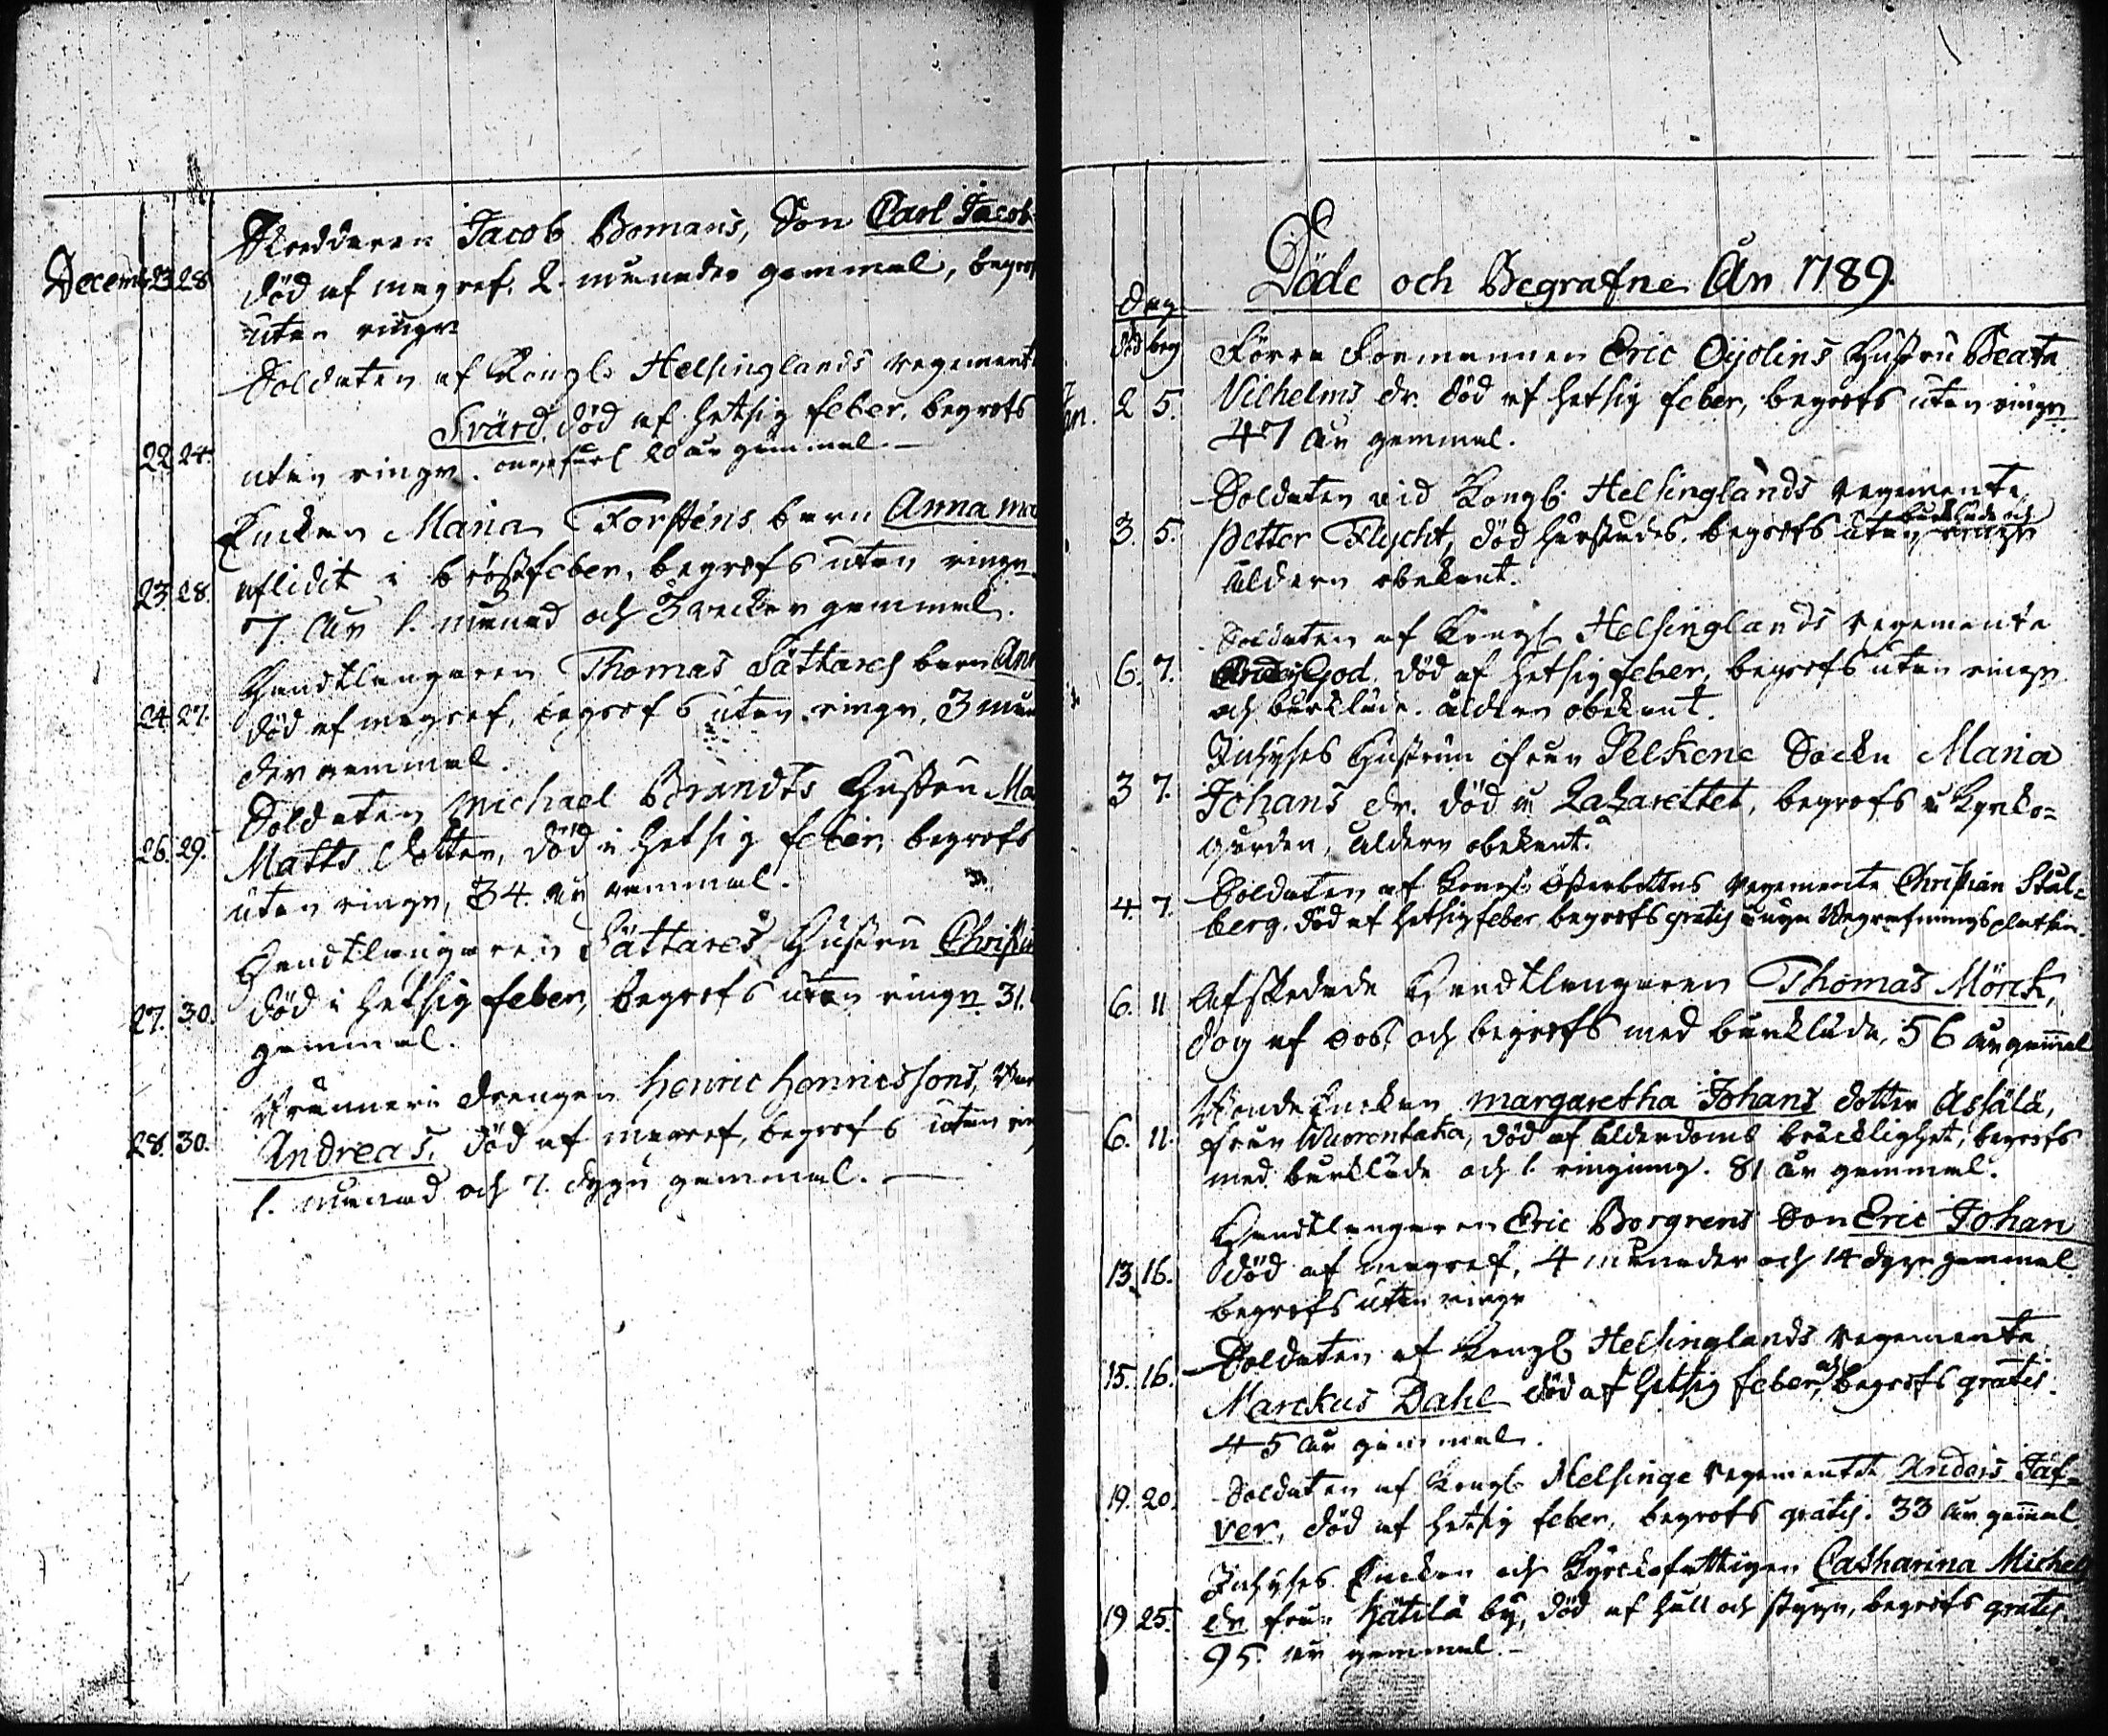 Skreddaren Jacob Bomans, Son Carl Jacob
Decemb. 23. 28. död af magref. 2. månader gammal, begrof
utan ringn
Soldaten af Kongl. Helsinglands regement
Svärd. död af hetsig feber, begrofs
22. 24. utan ringn. ongefärl 20 år gammal.
Enckan Maria Forsténs barn Anna
23. 28. aflidit i bröstfeber, begrofs utan ringn
7 år 1. månad och 3 veckor gammal.
Handtlangaren Thomas Sättares barn
24. 27. död af magref, begrofs utan ringn, 3
der gammal.
Soldaten Michael Brandts Hustru Ma
26. 29. Matts dotter, död i hetsig feber, begrofs
utan ringn, 34. år gammal.
Handtlangaren Sättares Hustru Christi
27. 30. död i hetsig feber, begrofs utan ringn 31.
gammal.
drengen Henric Henricssons,
28. 30. Andreas, död af magref, begrofs utan
1. månad och 7. dygn gammal.
Döde och Begrafne År 1789.
dag
död beg Förra Formannen Eric Oijolins Hustru Beata
2 5. Vilhelms dr. död af hetsig feber, begrofs utan ringn
47 år gammal.
Soldaten vid Kongl. Helsinglands regemente
bårkläde och
3. 5. Petter Flycht, död begrofs utan ringn
åldern obekant.
Soldaten af Kongl. Helsinglands regemente
6. 7. Anders God. död af hetsig feber, begrofs utan ringn
och bårkläde. åldern obekant.
Inhyses Hustrun ifrån Pelkene Sockn Maria
3 7. Johans dr. död å Lazarettet, begrofs å Kyrko=
gården, åldern obekant.
Soldaten af Kongl. Österbottns regemente Christian Stål=
4. 7. berg. död af hetsig feber, begrofs gratis å nya Begrafningsplatsen.
6. 11 Afskedade Handtlangaren Thomas Mörck,
dog af och begrofs med bårkläde, 56 år gamal
Bonde Enckan Margaretha Johans dotter Assälä,
6. 11. ifrån Wuorentaka, död af ålderdoms bräcklighet, begrofs
med bårkläde och 1. ringning. 81 år gammal.
Handtlangaren Eric Borgrens Son Eric Johan
13. 16. död af magref, 4 månader och 14 dygn gammal
begrofs utan ringn
Soldaten af Kongl. Helsinglands regemente
15. 16. Marckus Dahl död af hetsig feber, och begrofs gratis.
45 år gammal.
Soldaten af Kongl. Helsinge regemente Anders Jäf=
19. 20. ver, död af hetsig feber, begrofs gratis. 33 år gamal.
Inhyses Enckan och Kyrckofattigen Catharina Michels
19 25. dr. från Hätilä by, död af håll och styng, begrofs gratis
95. år gammal.